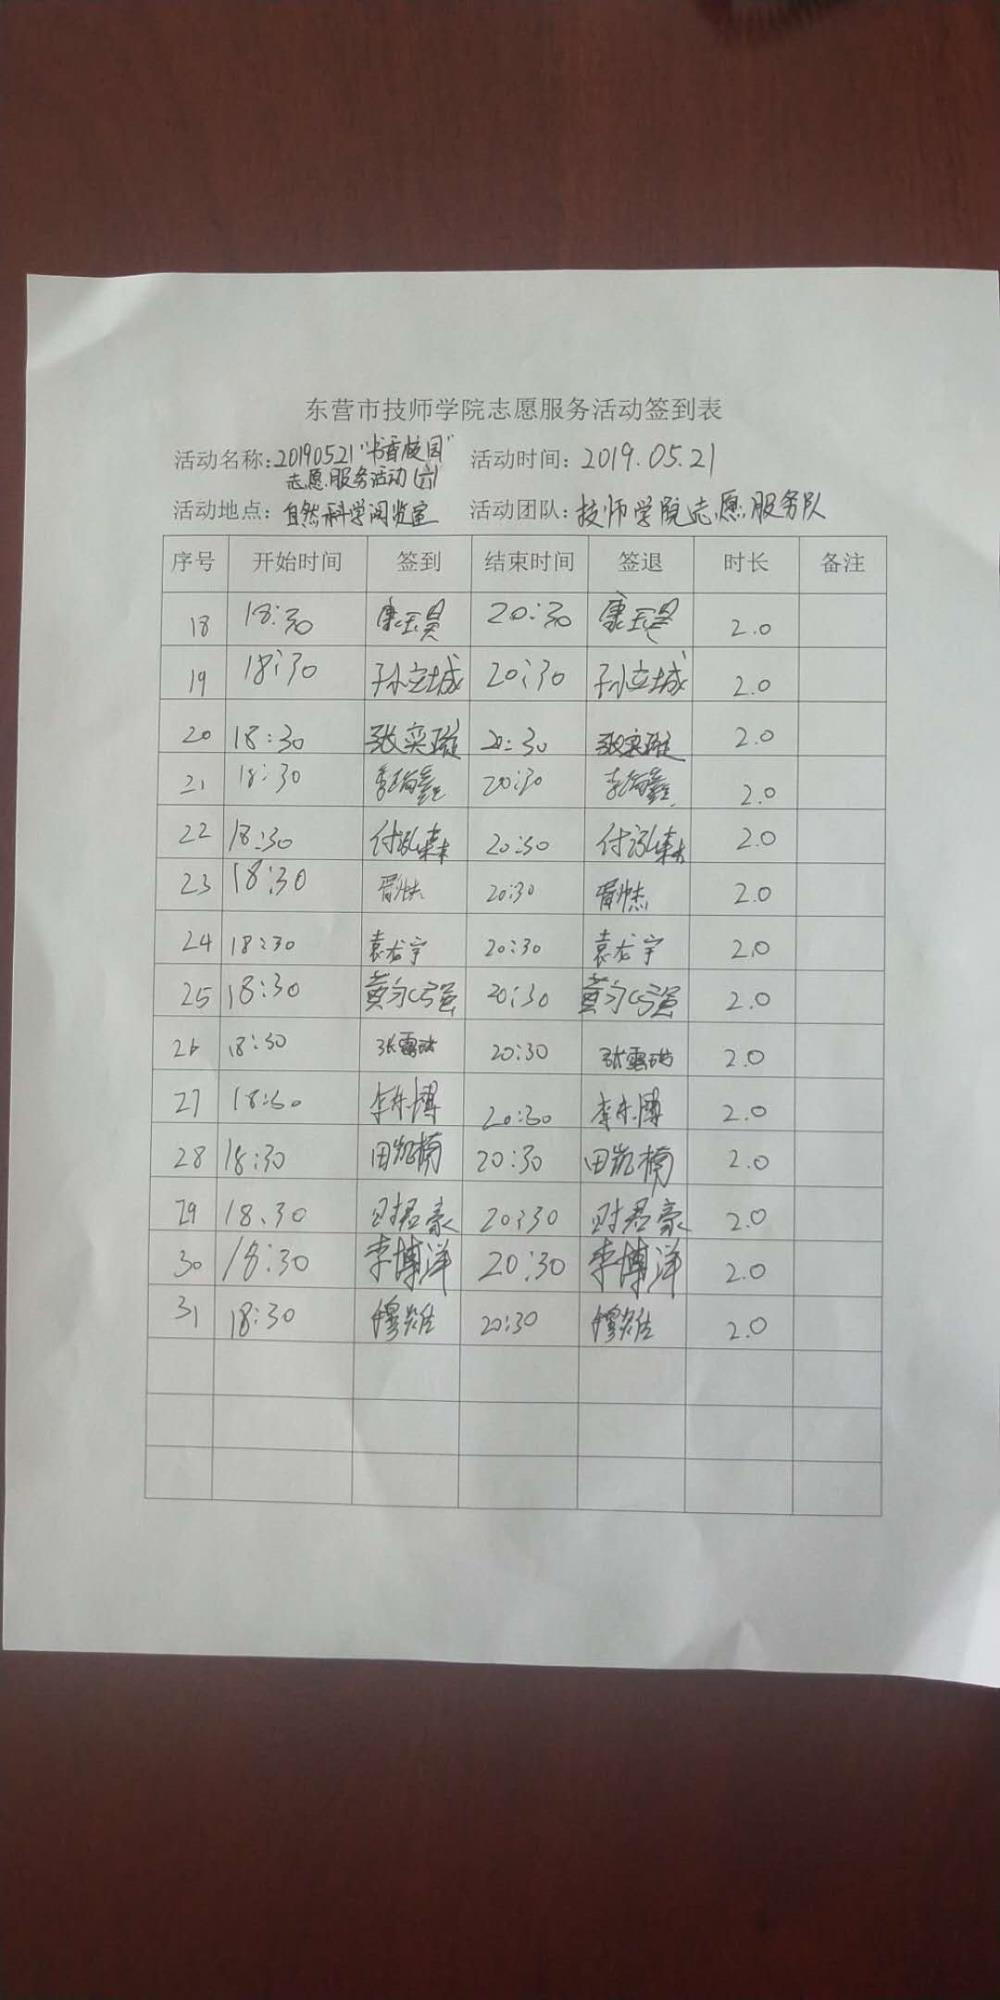 东营市技师学院志愿服务活动签到表
活动名称:20190521"书香校园" 活动时间:2019.05.21
志愿服务活动(六)
活动地点:自然科学阅览室 活动团队:技师学院志愿服务队
序号 开始时间 签到 结束时间 签退 时长 备注
18 18:30 康玉昊 20:30 康玉昊 2.0
19 18:30 孙立城 20:30 孙立城 2.0
20 18:30 张奕璇 20:30 张奕璇 2.0
21 18:30 20:30 2.0
22 18:30 20:30 2.0
23 18:30 胥帅杰 20:30 胥帅杰 2.0
24 18:30 袁龙宇 20:30 袁龙宇 2.0
25 18:30 20:30 2.0
26 18:30 20:30 2.0
27 18:30 李东博 20:30 李东博 2.0
28 18:30 田凯楠 20:30 田凯楠 2.0
29 18.30 20:30 2.0
30 18:30 李博洋 20:30 李博洋 2.0
31 18:30 20:30 2.0